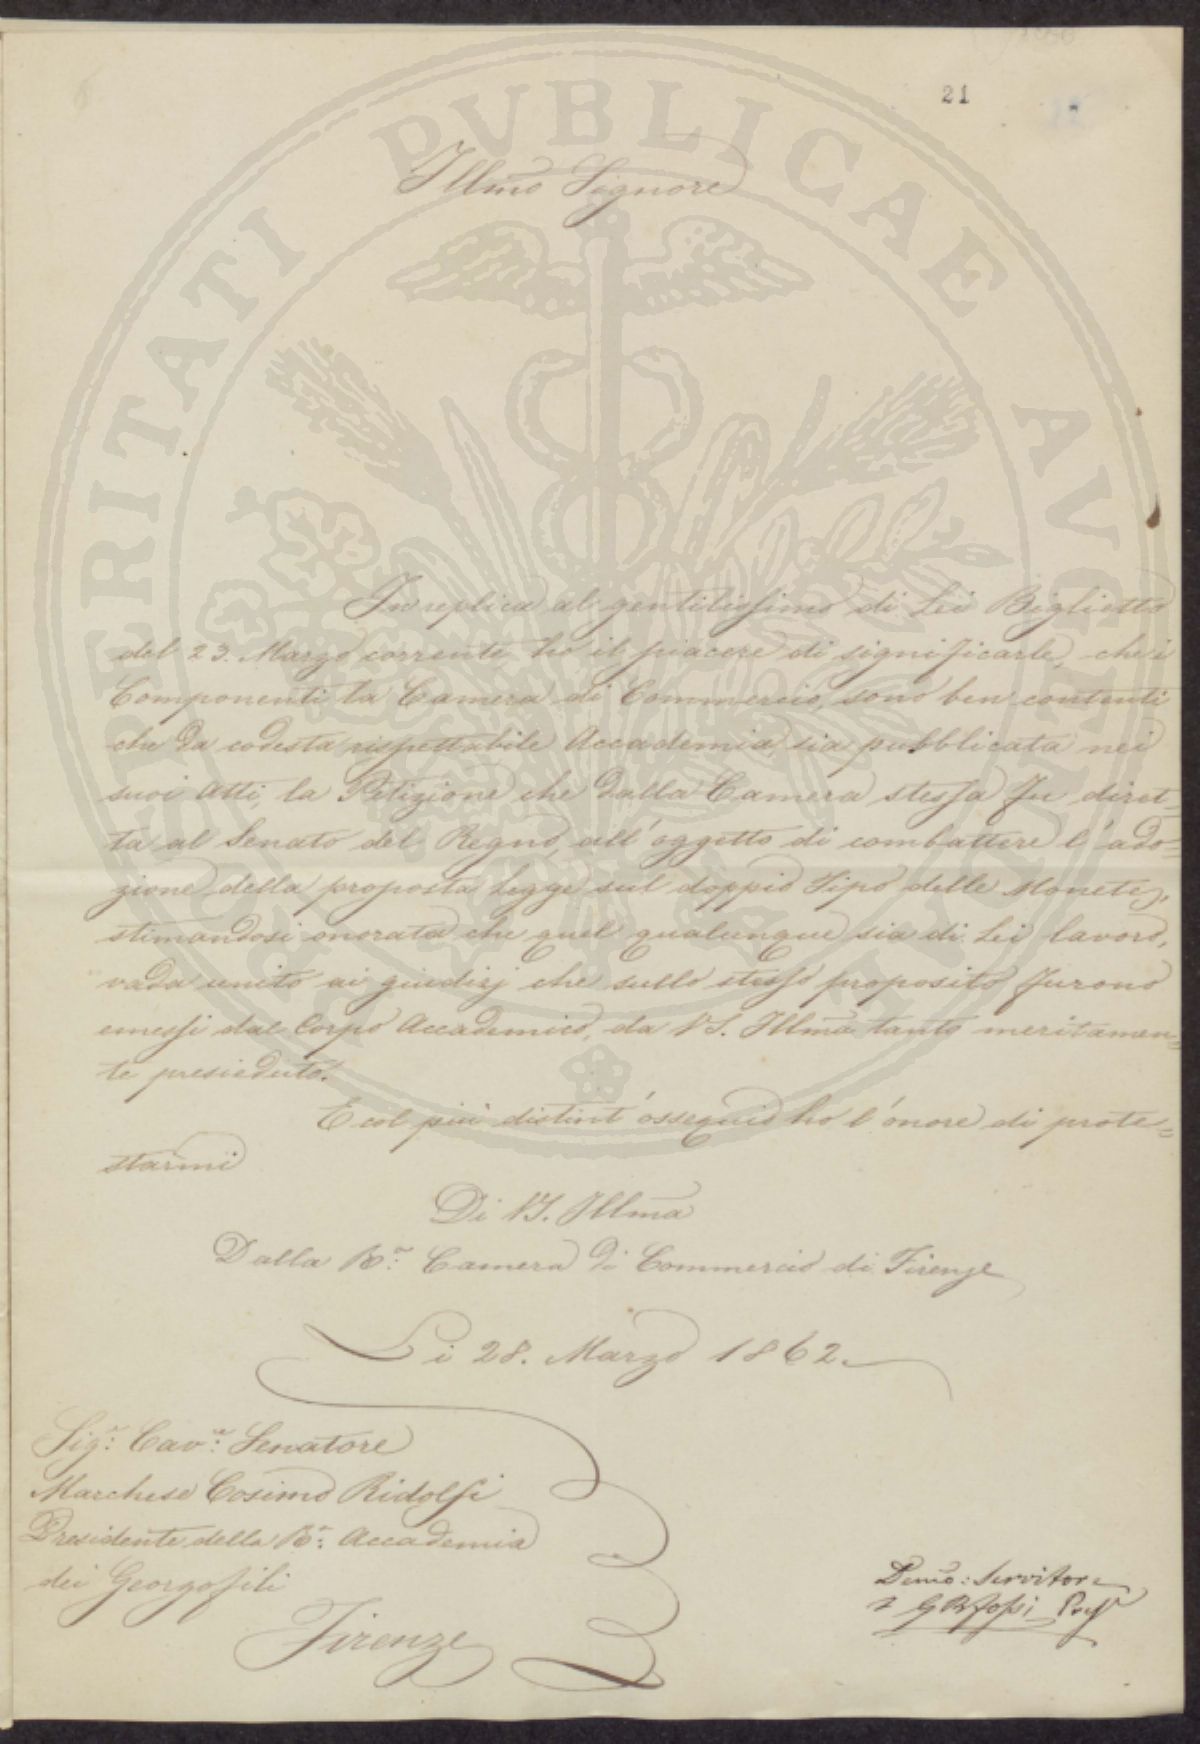 21
PROSPERITATI PVBLICAE AVGENDAE
Illmo Signore
In replica al gentilissimo di Lei Biglietto
del 23. Marzo corrente ho il piacere di significarle, che i
Componenti la Camera di Commercio, sono ben contenti
che da codesta rispettabile Accademia, sia pubblicata nei
suoi Atti, la Petizione che dalla Camera stessa fu diret-
ta al Senato del Regno, all'oggetto di combattere l'ado=
zione della proposta Legge sul doppio Tipo delle Monete,
stimandosi onorata che quel qualunque sia di Lei lavoro,
vada unito ai giudizj che sullo stesso proposito furono
emessi dal Corpo Accademico, da VS. Illma tanto meritamen=
te presieduto.
E col più distint'ossequio ho l'onore di prote=
starmi
Di VS. Illma
Dalla Ra: Camera di Commercio di Firenze
Li 28. Marzo 1862.
Sigr: Cavre: Senatore
Marchese Cosimo Ridolfi
Presidente della Ra: Accademia
dei Georgofili
Firenze
Devmo: Servitore